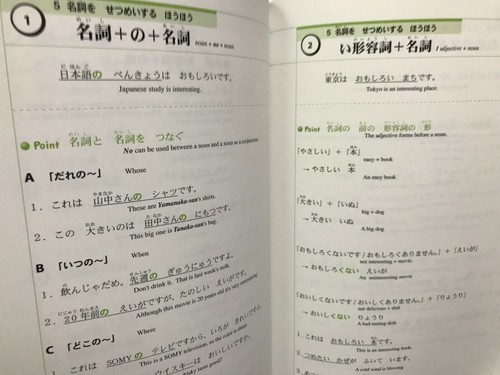 1
5 名詞を せつめいする ほうほう
名詞+の+名詞
noun + no + noun
日本語の べんきょうは おもしろいです。
Japanese study is interesting.
Point 名詞と 名詞を つなぐ
No can be used between a noun and a noun as a conjunction.
A 「だれの~」 Whose
1. これは 山中さんの シャツです。
These are Yamanaka-san's shirts.
2. この 大きいのは 田中さんの にもつです。
This big one is Tanaka-san's bag.
B 「いつの~」 When
1. 飲んじゃだめ。先週の ぎゅうにゅうですよ。
Don't drink it. That is last week's milk.
2. 20年前の えいがですが、たのしい えいがです。
Although this movie is 20 years old it's very interesting.
C 「どこの~」 Where
1. これは SOMYの テレビですから、いろが きれいです
This is a SOMY television, so the color is
ウイスキーは おいしいですか。
2
5 名詞を せつめいする ほうほう
い形容詞+名詞
I adjective + noun
東京は おもしろい まちです。
Tokyo is an interesting place.
Point 名詞の 前の 形容詞の 形
The adjective forms before a noun.
「やさしい」+「本」
easy + book
→ やさしい 本
An easy book
「大きい」+「いぬ」
big + dog
→ 大きい いぬ
A big dog
「おもしろくないです/おもしろくありません。」+「えいが」
not interesting + movie
→ おもしろくない えいが
An uninteresting movie
「おいしくないです/おいしくありません。」+「りょうり」
not delicious + dish
→ おいしくない りょうり
A bad-tasting dish
1. これは おもしろい 本です。
This is an interesting book.
2. つめたい かぜが ふいて います。
A cold wind is blowing.